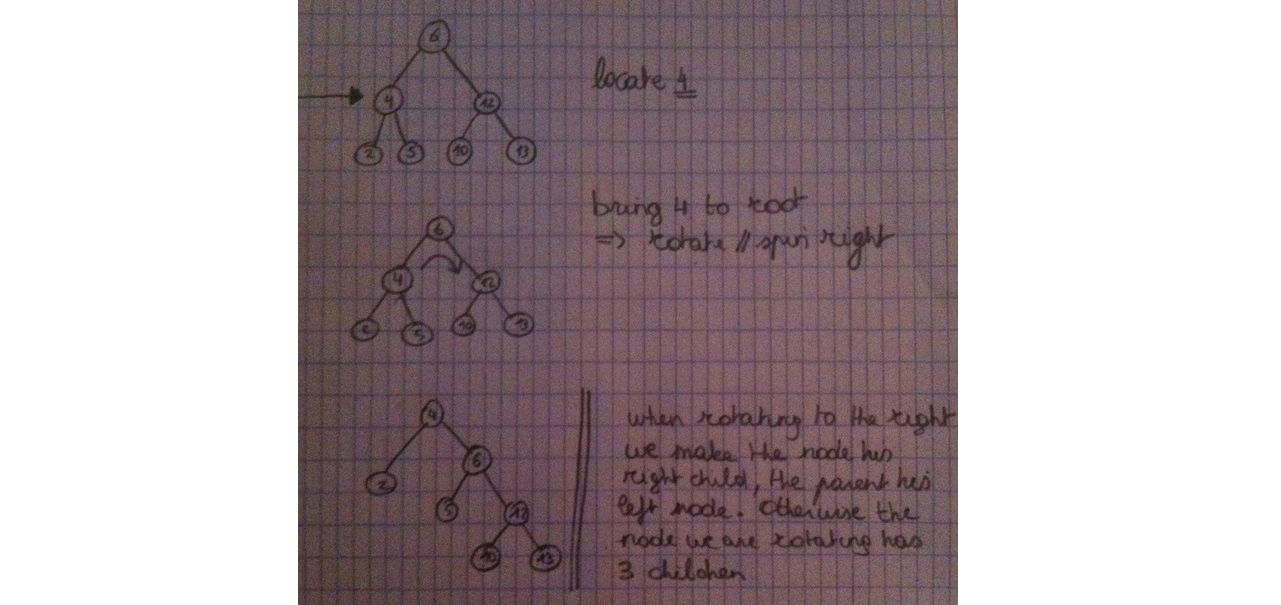 6
locate 4
4 12
2 5 10 13
bring 4 to root
=> rotate // spin right
6
4 12
2 5 10 13
4
when rotating to the right
we make the node his
6
right child, the parent his
2
left node. Otherwise the
5 12
node we are rotating has
10 13
3 children